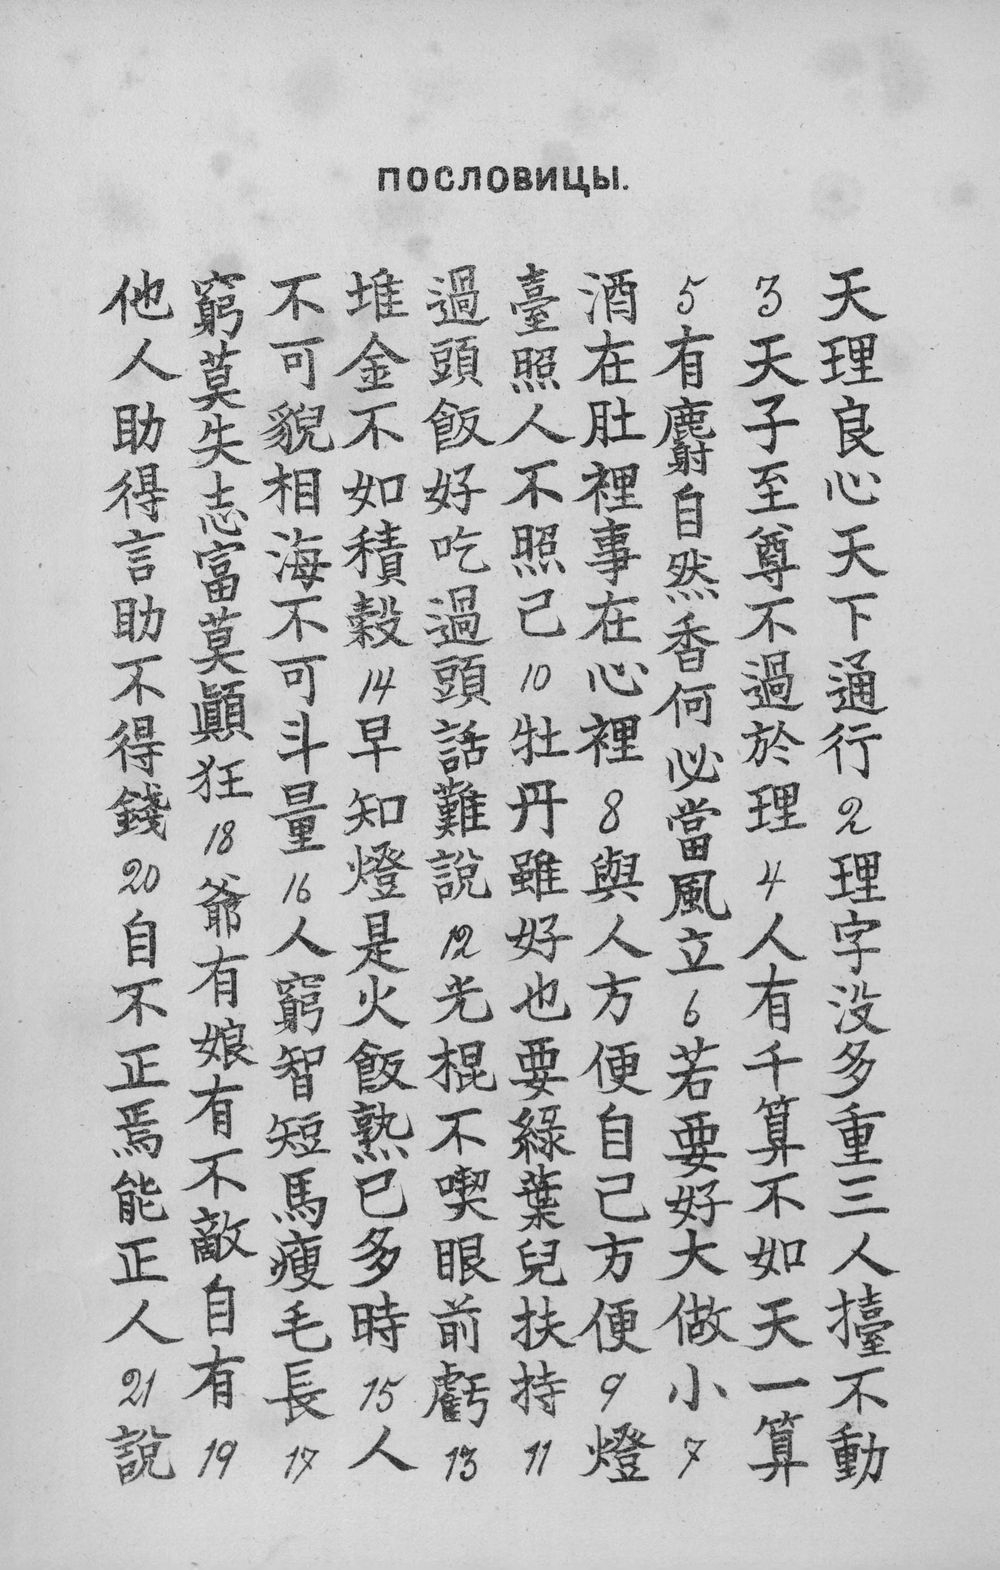 ПОСЛОВИЦЫ.
天理良心天下通行2理字没多重三人擡不動
3天子至尊不過於理4人有千算不如天一算
5有麝自然香何必當風立6若要好大做小7
酒在肚裡事在心裡8與人方便自己方便9燈
臺照人不照己10牡丹雖好也要綠葉兒扶持11
過頭飯好吃過頭話難說12光棍不喫眼前虧13
堆金不如積穀14早知燈是火飯熟已多時15人
不可貌相海不可斗量16人窮智短馬瘦毛長17
窮莫失志富莫顚狂18爺有娘有不敵自有19
他人助得言助不得錢20自不正焉能正人21說